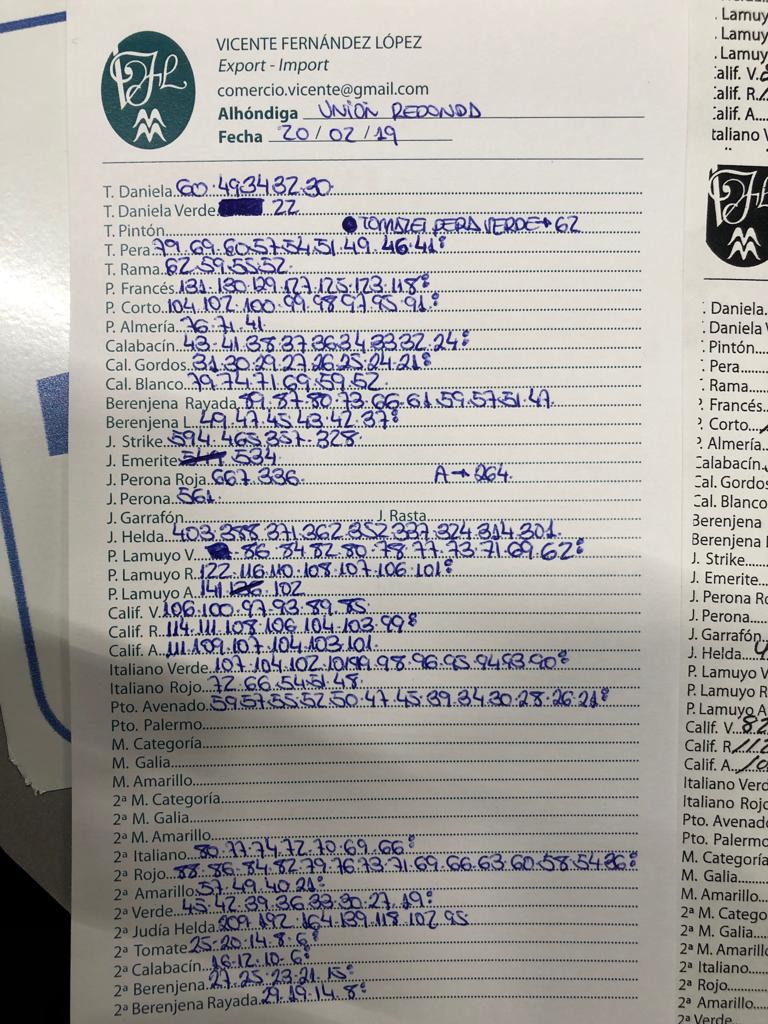 VICENTE FERNÁNDEZ LÓPEZ
Export - Import
comercio.vicente@gmail.com
Alhóndiga UNIÓN REDONDA
Fecha 20/02/19
T. Daniela 60.49.34.32.30
T. Daniela Verde 22
T. Pintón ● TOMATE PERA VERDE → 62
T. Pera 79.69.60.57.54.51.49.46.41
T. Rama 62.59.55.52
P. Francés 131.130.129.127.125.123.118
P. Corto 104.102.100.99.98.97.95.91
P. Almería 76.71.41
Calabacín 43.41.38.37.36.34.33.32.24
Cal. Gordos 31.30.29.27.26.25.24.21
Cal. Blanco 79.74.71.69.59.52
Berenjena Rayada 89.87.80.73.66.61.59.57.51.47
Berenjena L. 49.47.45.43.42.37
J. Strike 594.465.357.328
J. Emerite 534
J. Perona Roja 667.336 A → 264
J. Perona 561
J. Garrafón J. Rasta
J. Helda 403.388.371.362.352.337.324.314.301
P. Lamuyo V. 86.84.82.80.78.77.73.71.69.62
P. Lamuyo R. 122.116.110.108.107.106.101
P. Lamuyo A. 141 102
Calif. V. 106.100.97.93.89.85
Calif. R. 114.111.108.106.104.103.99
Calif. A. 111.109.107.104.103.101
Italiano Verde 107.104.102.101.99.98.96.95.94.93.90
Italiano Rojo 72.66.54.51.48
Pto. Avenado 59.57.55.52.50.47.45.39.34.30.28.26.21
Pto. Palermo
M. Categoría
M. Galia
M. Amarillo
2ª M. Categoría
2ª M. Galia
2ª M. Amarillo
2ª Italiano 80.77.74.72.70.69.66
2ª Rojo 88.86.84.82.79.76.73.71.69.66.63.60.58.54.36
2ª Amarillo 57.49.40.21
2ª Verde 45.42.39.36.33.30.27.19
2ª Judía Helda 209.192.164.139.118.102.95
2ª Tomate 25.20.14.8.6
2ª Calabacín 16.12.10.6
2ª Berenjena 27.25.23.21.15
2ª Berenjena Rayada 29.19.14.8
. Lamuy
. Lamuy
. Lamuy
alif. V.
alif. R.
alif. A.
taliano V
. Daniela
. Daniela V
. Pintón
. Pera
. Rama
. Francés
. Corto
. Almería
Calabacín
Cal. Gordos
Cal. Blanco
Berenjena
Berenjena
J. Strike
J. Emerite
J. Perona Ro
J. Perona
J. Garrafón
J. Helda
P. Lamuyo V
P. Lamuyo R
P. Lamuyo A
Calif. V. 82
Calif. R. 112
Calif. A. 10
Italiano Verd
Italiano Rojo
Pto. Avenado
Pto. Palermo
M. Categoría
M. Galia
M. Amarillo
2ª M. Catego
2ª M. Galia
2ª M. Amarill
2ª Italiano
2ª Rojo
2ª Amarillo
2ª Verde